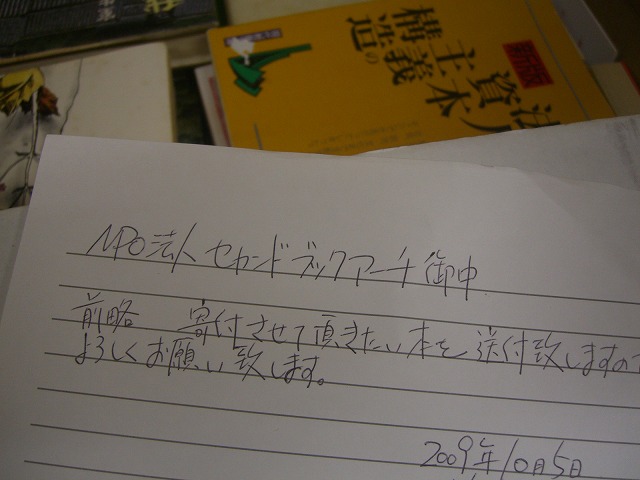 新版
法人
資本
主義の
構造
NPO法人セカンドブックアーチ御中
前略 寄付させて頂きたい本を送付致しますので
よろしくお願い致します。
2009年10月5日